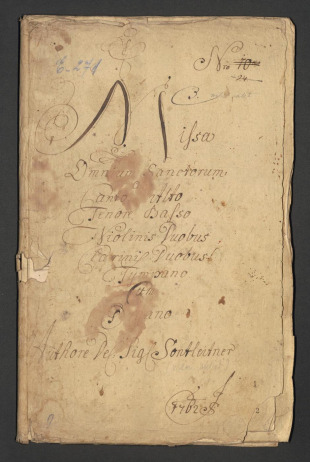 E. 271
Nro 10
24
Missa
Omnium Sanctorum
Canto Alto
Tenore Basso
Violinis Duobus
Clarinis Duobus
Tympano
Con
Organo
Authore Del Sig: Sonnleitner
1762
2